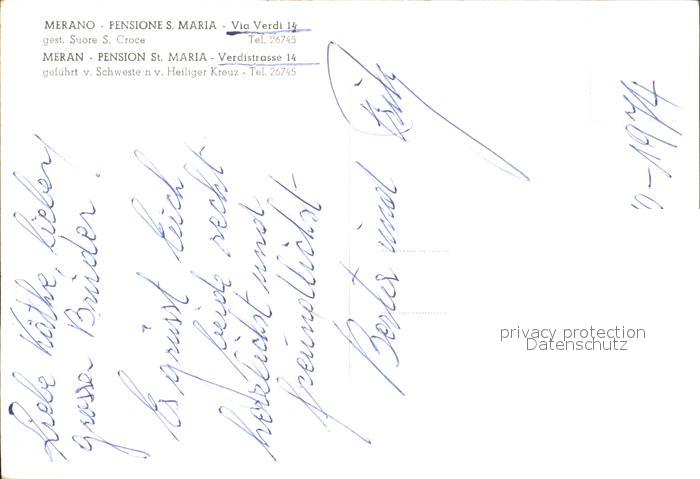 MERANO - PENSIONE S. MARIA - Via Verdi 14
gest. Suore S. Croce Tel. 26745
MERAN - PENSION St. MARIA - Verdistrasse 14
geführt v. Schweste n v. Heiliger Kreuz - Tel. 26745
Liebe Käthe, lieber
grosser Bruder.
Es grüsst Euch
beide recht
herzlichst und
freundlichst
und
-1974
privacy protection
Datenschutz